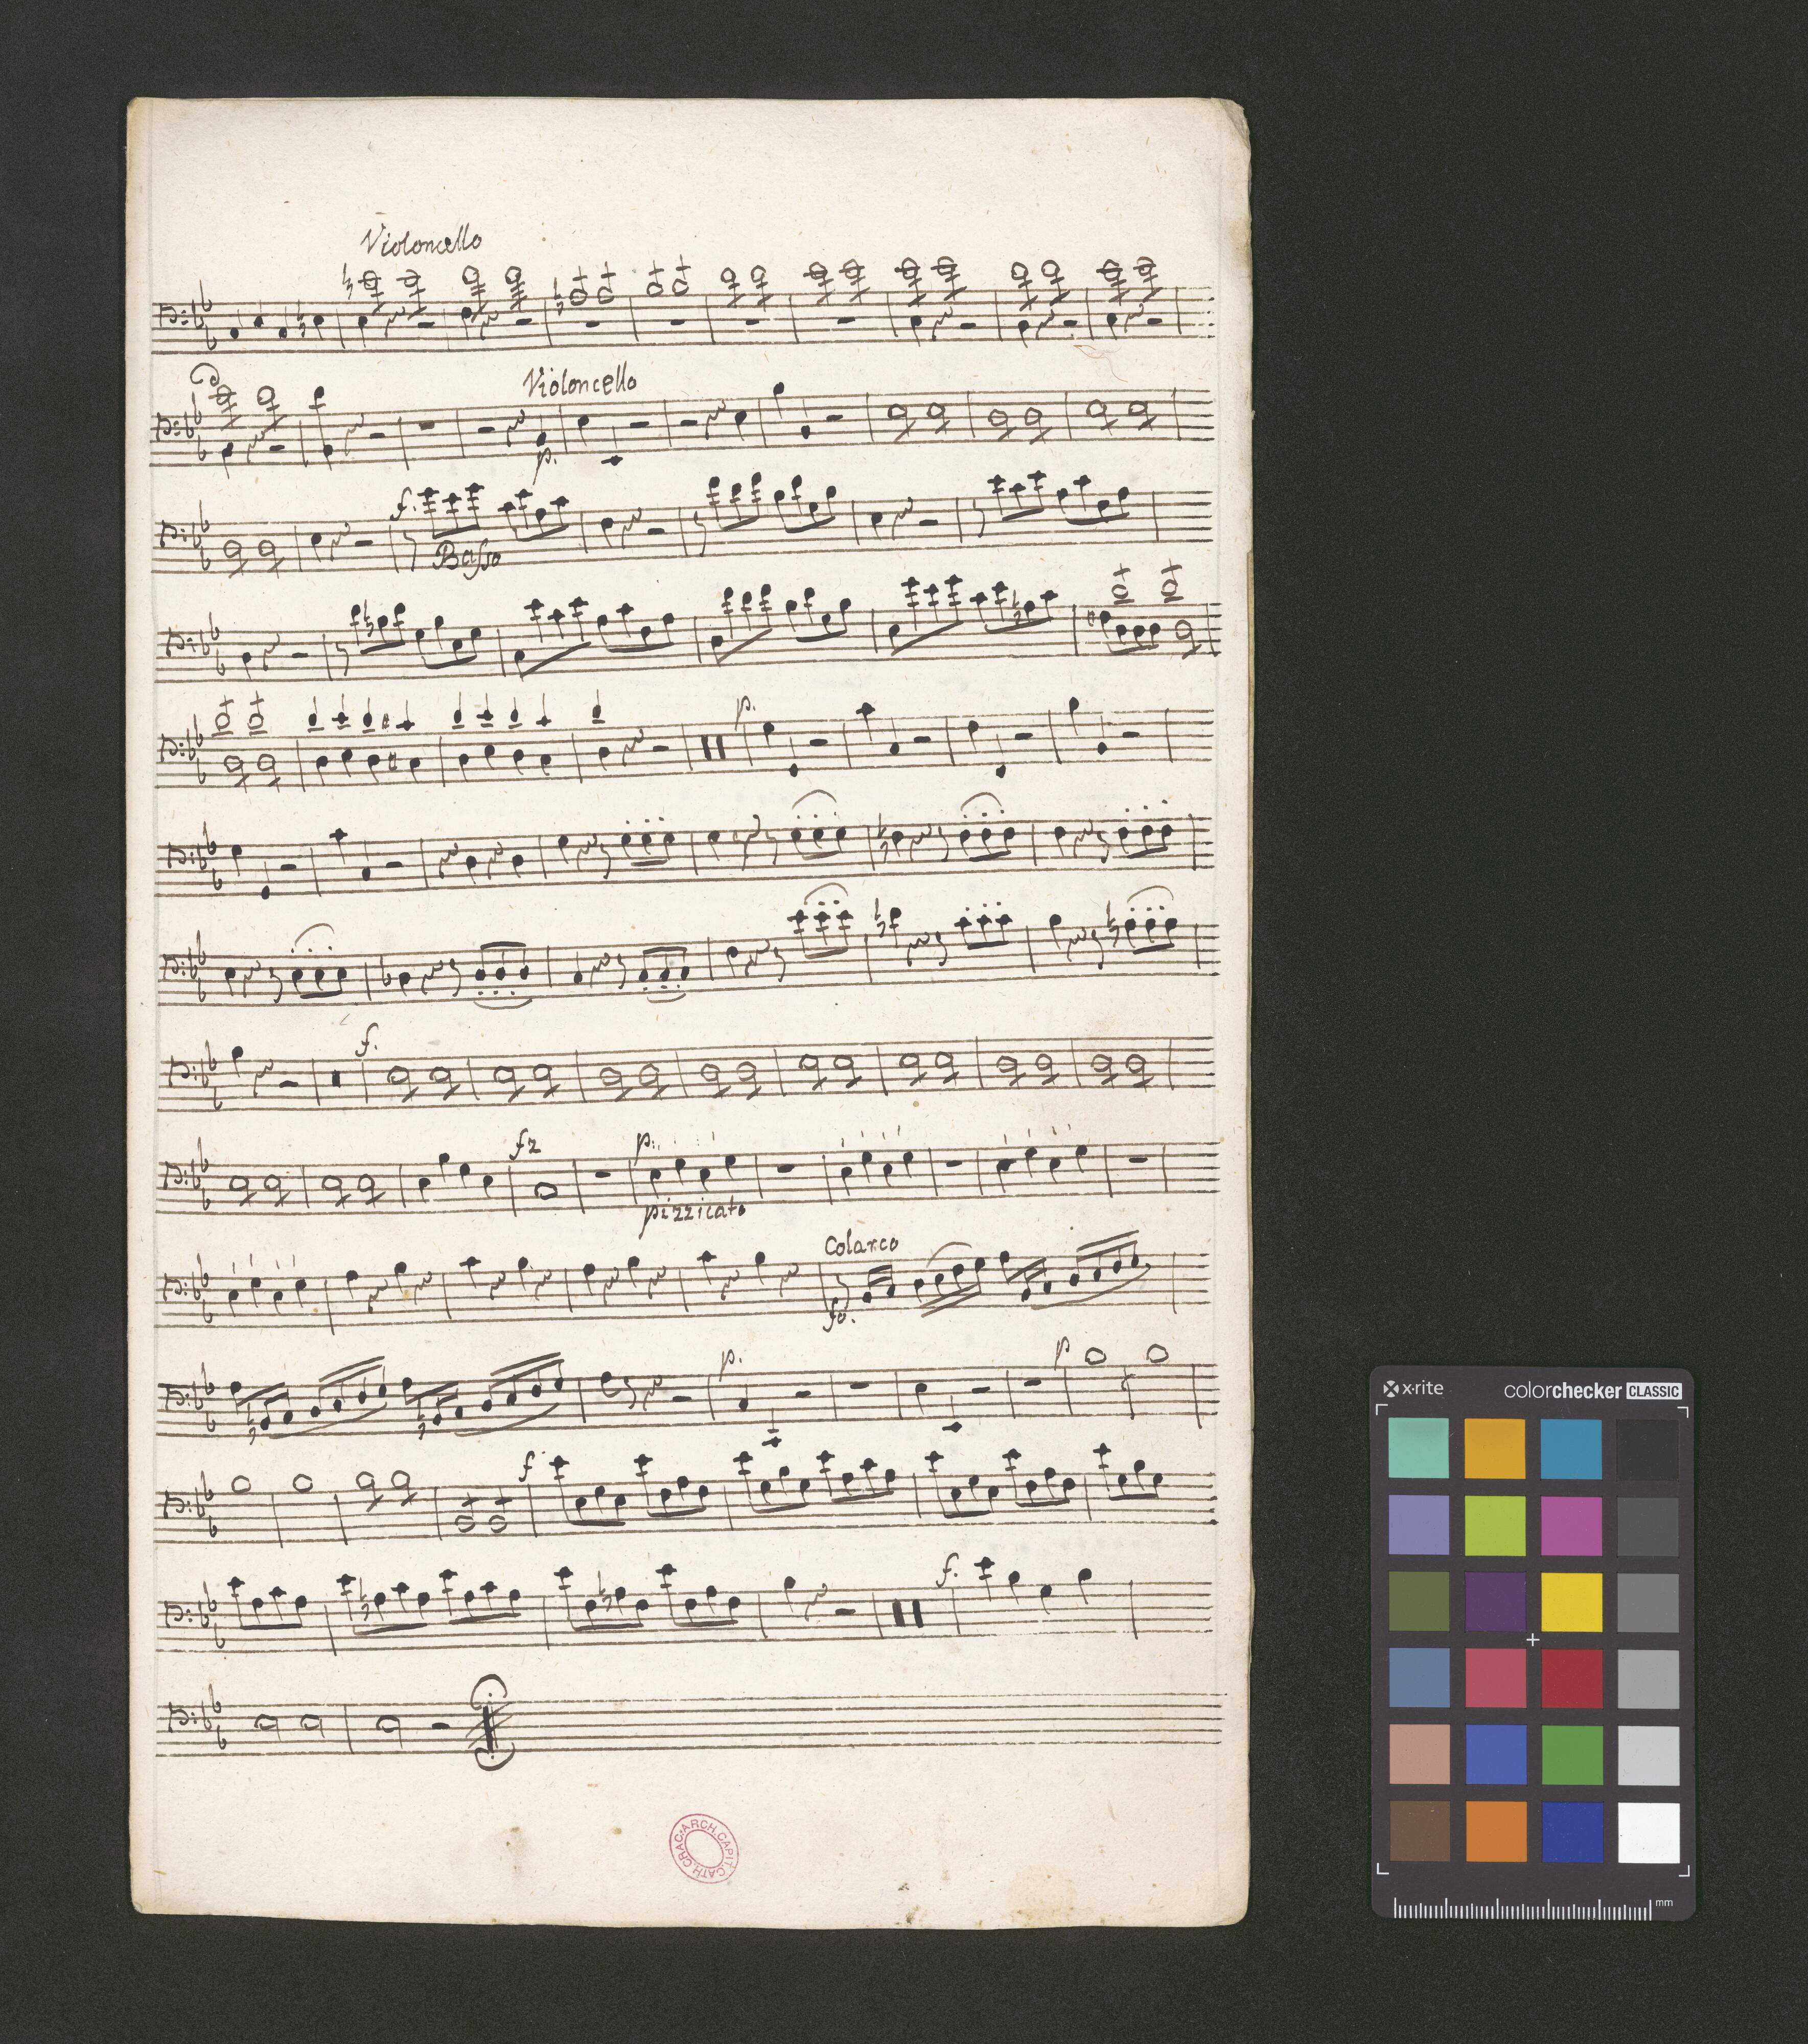 Violoncello
Violoncello
p.
f.
Basso
p.
f.
fz
p:
pizzicato
Colarco
fo.
p.
p
f
f.
ARCH.CAPIT.CATH.CRAC.
x·rite
colorchecker CLASSIC
mm